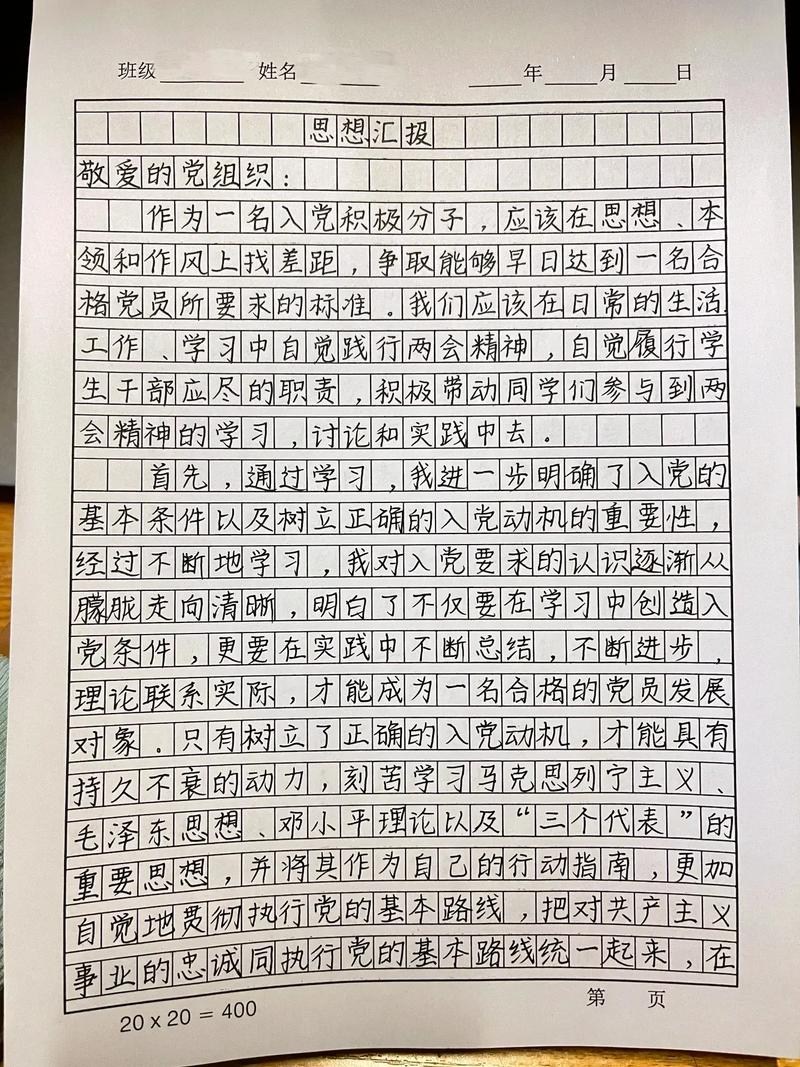 班级 姓名 年 月 日
思想汇报
敬爱的党组织：
作为一名入党积极分子，应该在思想、本
领和作风上找差距，争取能够早日达到一名合
格党员所要求的标准。我们应该在日常的生活
工作、学习中自觉践行两会精神，自觉履行学
生干部应尽的职责，积极带动同学们参与到两
会精神的学习，讨论和实践中去。
首先，通过学习，我进一步明确了入党的
基本条件以及树立正确的入党动机的重要性，
经过不断地学习，我对入党要求的认识逐渐从
朦胧走向清晰，明白了不仅要在学习中创造入
党条件，更要在实践中不断总结，不断进步，
理论联系实际，才能成为一名合格的党员发展
对象。只有树立了正确的入党动机，才能具有
持久不衰的动力，刻苦学习马克思列宁主义、
毛泽东思想、邓小平理论以及“三个代表”的
重要思想，并将其作为自己的行动指南，更加
自觉地贯彻执行党的基本路线，把对共产主义
事业的忠诚同执行党的基本路线统一起来，在
20 x 20 = 400 第 页